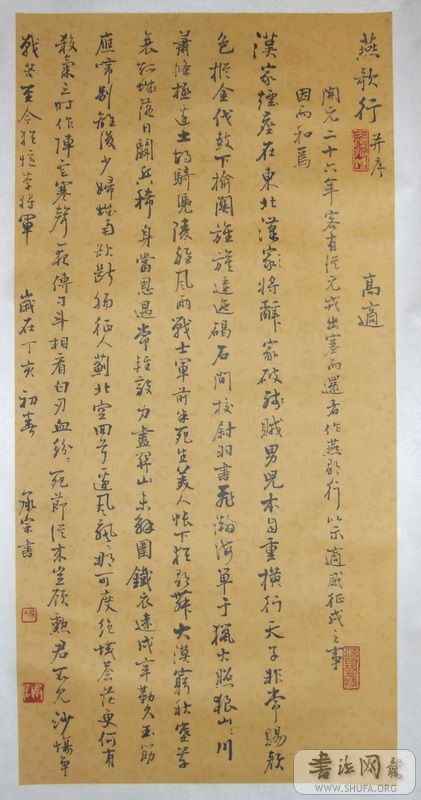 燕歌行 并序 高適
開元二十六年客有從元戎出塞而還者作燕歌行以示適感征戍之事
因而和焉
漢家煙塵在東北漢家將辭家破殘賊男兒本自重橫行天子非常賜顏
色摐金伐鼓下榆關旌旗逶迤碣石間校尉羽書飛瀚海單于獵火照狼山〻川
蕭條極邊土胡騎憑陵雜風雨戰士軍前半死生美人帳下猶歌舞大漠窮秋塞草
衰孤城落日鬥兵稀身當恩遇常輕敵力盡關山未解圍鐵衣遠戍辛勤久玉筯
應啼別離後少婦城南欲斷腸征人薊北空回首邊風飄〻那可度絕域蒼茫更何有
殺氣三時作陣雲寒聲一夜傳刁斗相看白刃血紛〻死節從來豈顧勳君不見沙場爭
戰苦至今猶憶李將軍 歲在丁亥初春 書
書法网
WWW.SHUFA.ORG